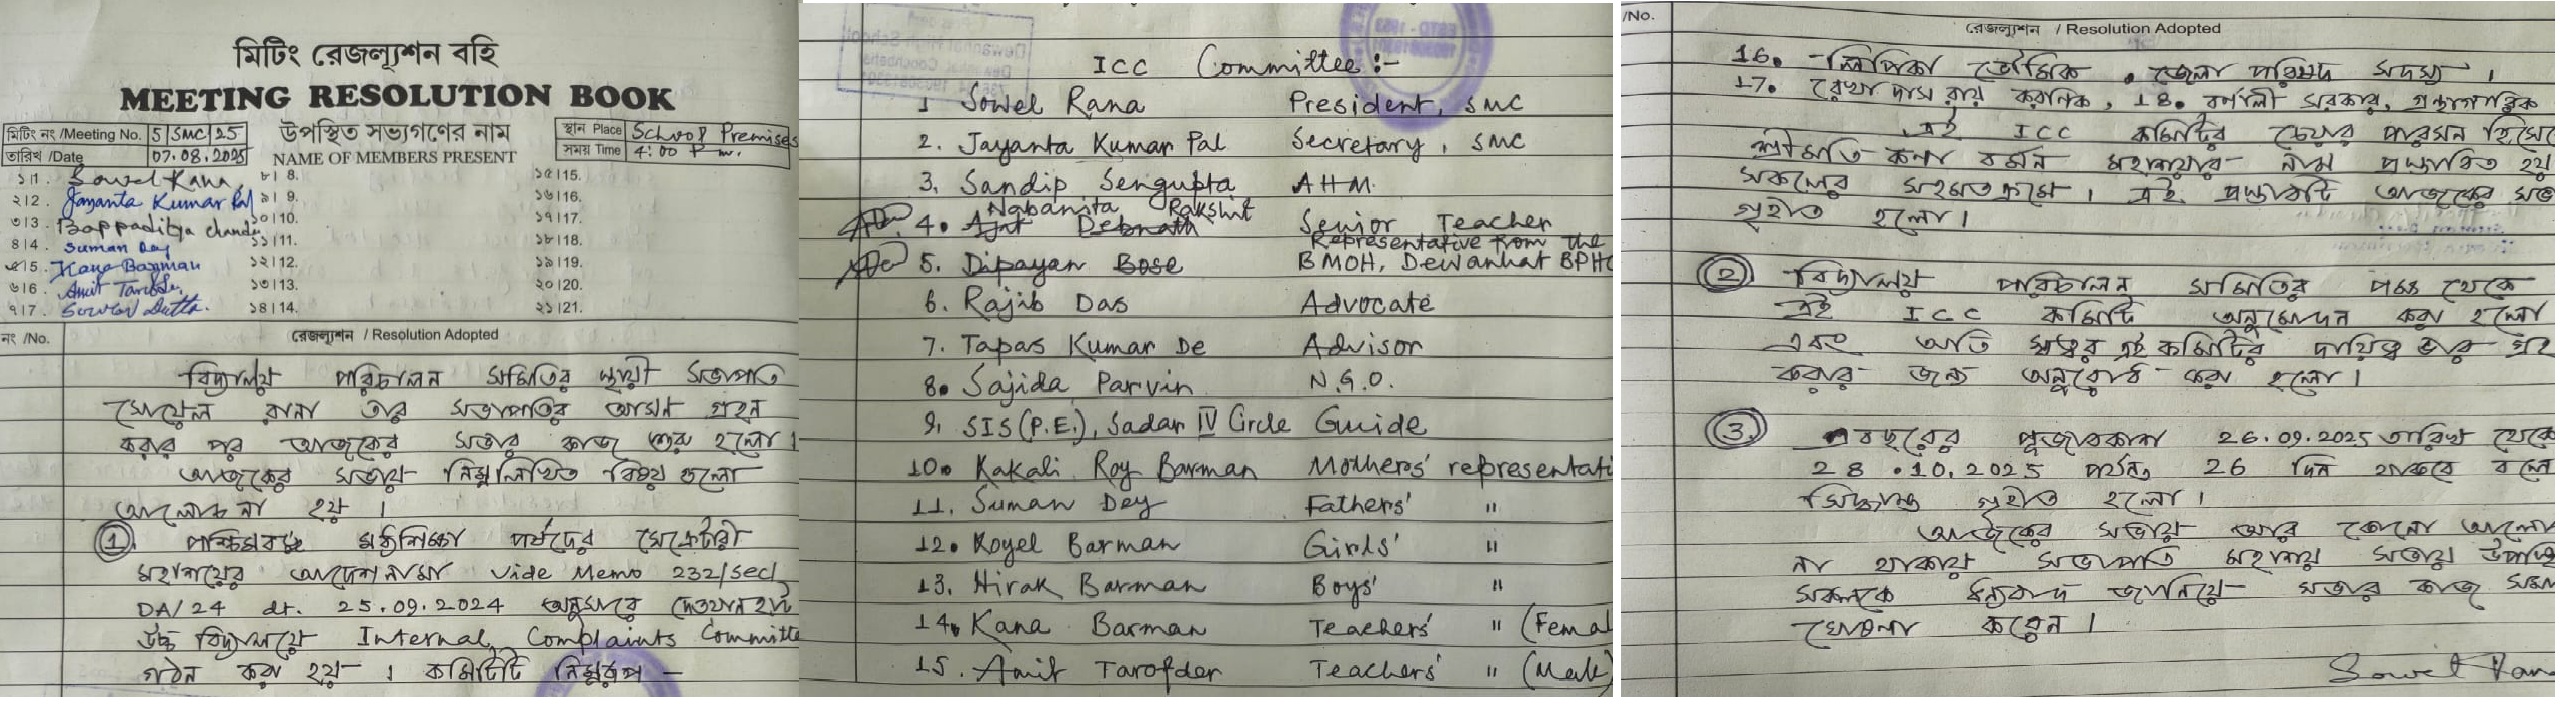 মিটিং রেজল্যুশন বহি
MEETING RESOLUTION BOOK
মিটিং নং /Meeting No. 5/SMC/25
তারিখ /Date 07.08.2025
উপস্থিত সভ্যগণের নাম
NAME OF MEMBERS PRESENT
স্থান Place School Premises
সময় Time 4:00 P.m.
১।1. Sowel Rana
২।2. Jayanta Kumar Pal
৩।3. Bappaditya Chanda
৪।4. Suman Dey
৫।5. Kana Barman
৬।6. Amit Tarofder
৭।7. Dutta
৮।8.
৯।9.
১০।10.
১১।11.
১২।12.
১৩।13.
১৪।14.
১৫।15.
১৬।16.
১৭।17.
১৮।18.
১৯।19.
২০।20.
২১।21.
নং /No.
রেজল্যুশন / Resolution Adopted
বিদ্যালয় পরিচালন সমিতির স্থায়ী সভাপতি
সোয়েল রানা তার সভাপতির আসন গ্রহন
করার পর আজকের সভার কাজ শুরু হলো।
আজকের সভায় নিম্নলিখিত বিষয় গুলো
আলোচনা হয়।
① পশ্চিমবঙ্গ মধ্যশিক্ষা পর্ষদের সেক্রেটারী
মহাশয়ের আদেশনামা vide Memo 232/Sec/
DA/24 dt. 25.09.2024 অনুসারে দেওয়ানহাট
উচ্চ বিদ্যালয়ে Internal Complaints Committe
গঠন করা হয়। কমিটিটি নিম্নরূপ —
ICC Committee :-
1 Sowel Rana President, SMC
2. Jayanta Kumar Pal Secretary, SMC
3. Sandip Sengupta AHM.
Nabanita Rakshit
4. Ajit Debnath Senior Teacher
Representative from the
5. Dipayan Bose BMOH, Dewanhat BPHC
6. Rajib Das Advocate
7. Tapas Kumar De Advisor
8. Sajida Parvin N.G.O.
9. SIS (P.E.), Sadar IV Circle Guide
10. Kakali Roy Barman Mothers' representati
11. Suman Dey Fathers' "
12. Koyel Barman Girls' "
13. Hirak Barman Boys' "
14. Kana Barman Teachers' " (Femal
15. Amit Tarofder Teachers' " (Male)
/No.
রেজল্যুশন / Resolution Adopted
16. লিপিকা ভৌমিক, জেলা পরিষদ সদস্য।
17. রেখা দাস রায় করনিক, 18. বর্ণালী সরকার, গ্রন্থাগারিক
এই ICC কমিটির চেয়ার পারসন হিসে
শ্রীমতি কনা বর্মন মহাশয়ার নাম প্রস্তাবিত হয়
সকলের সহমতক্রমে। এই প্রস্তাবটি আজকের সভা
গৃহীত হলো।
② বিদ্যালয় পরিচালন সমিতির পক্ষ থেকে
এই ICC কমিটি অনুমোদন করা হলো
এবং অতি সত্বর এই কমিটির দায়িত্ব ভার গ্রহ
করার জন্য অনুরোধ করা হলো।
③ এবছরের পূজাবকাশ 26.09.2025 তারিখ থেকে
28.10.2025 পর্যন্ত 26 দিন থাকবে বলে
সিদ্ধান্ত গৃহীত হলো।
আজকের সভায় আর কোনো আলো
না থাকায় সভাপতি মহাশয় সভায় উপস্থি
সকলকে ধন্যবাদ জানিয়ে সভার কাজ সমা
ঘোষনা করেন।
Sowel Rana